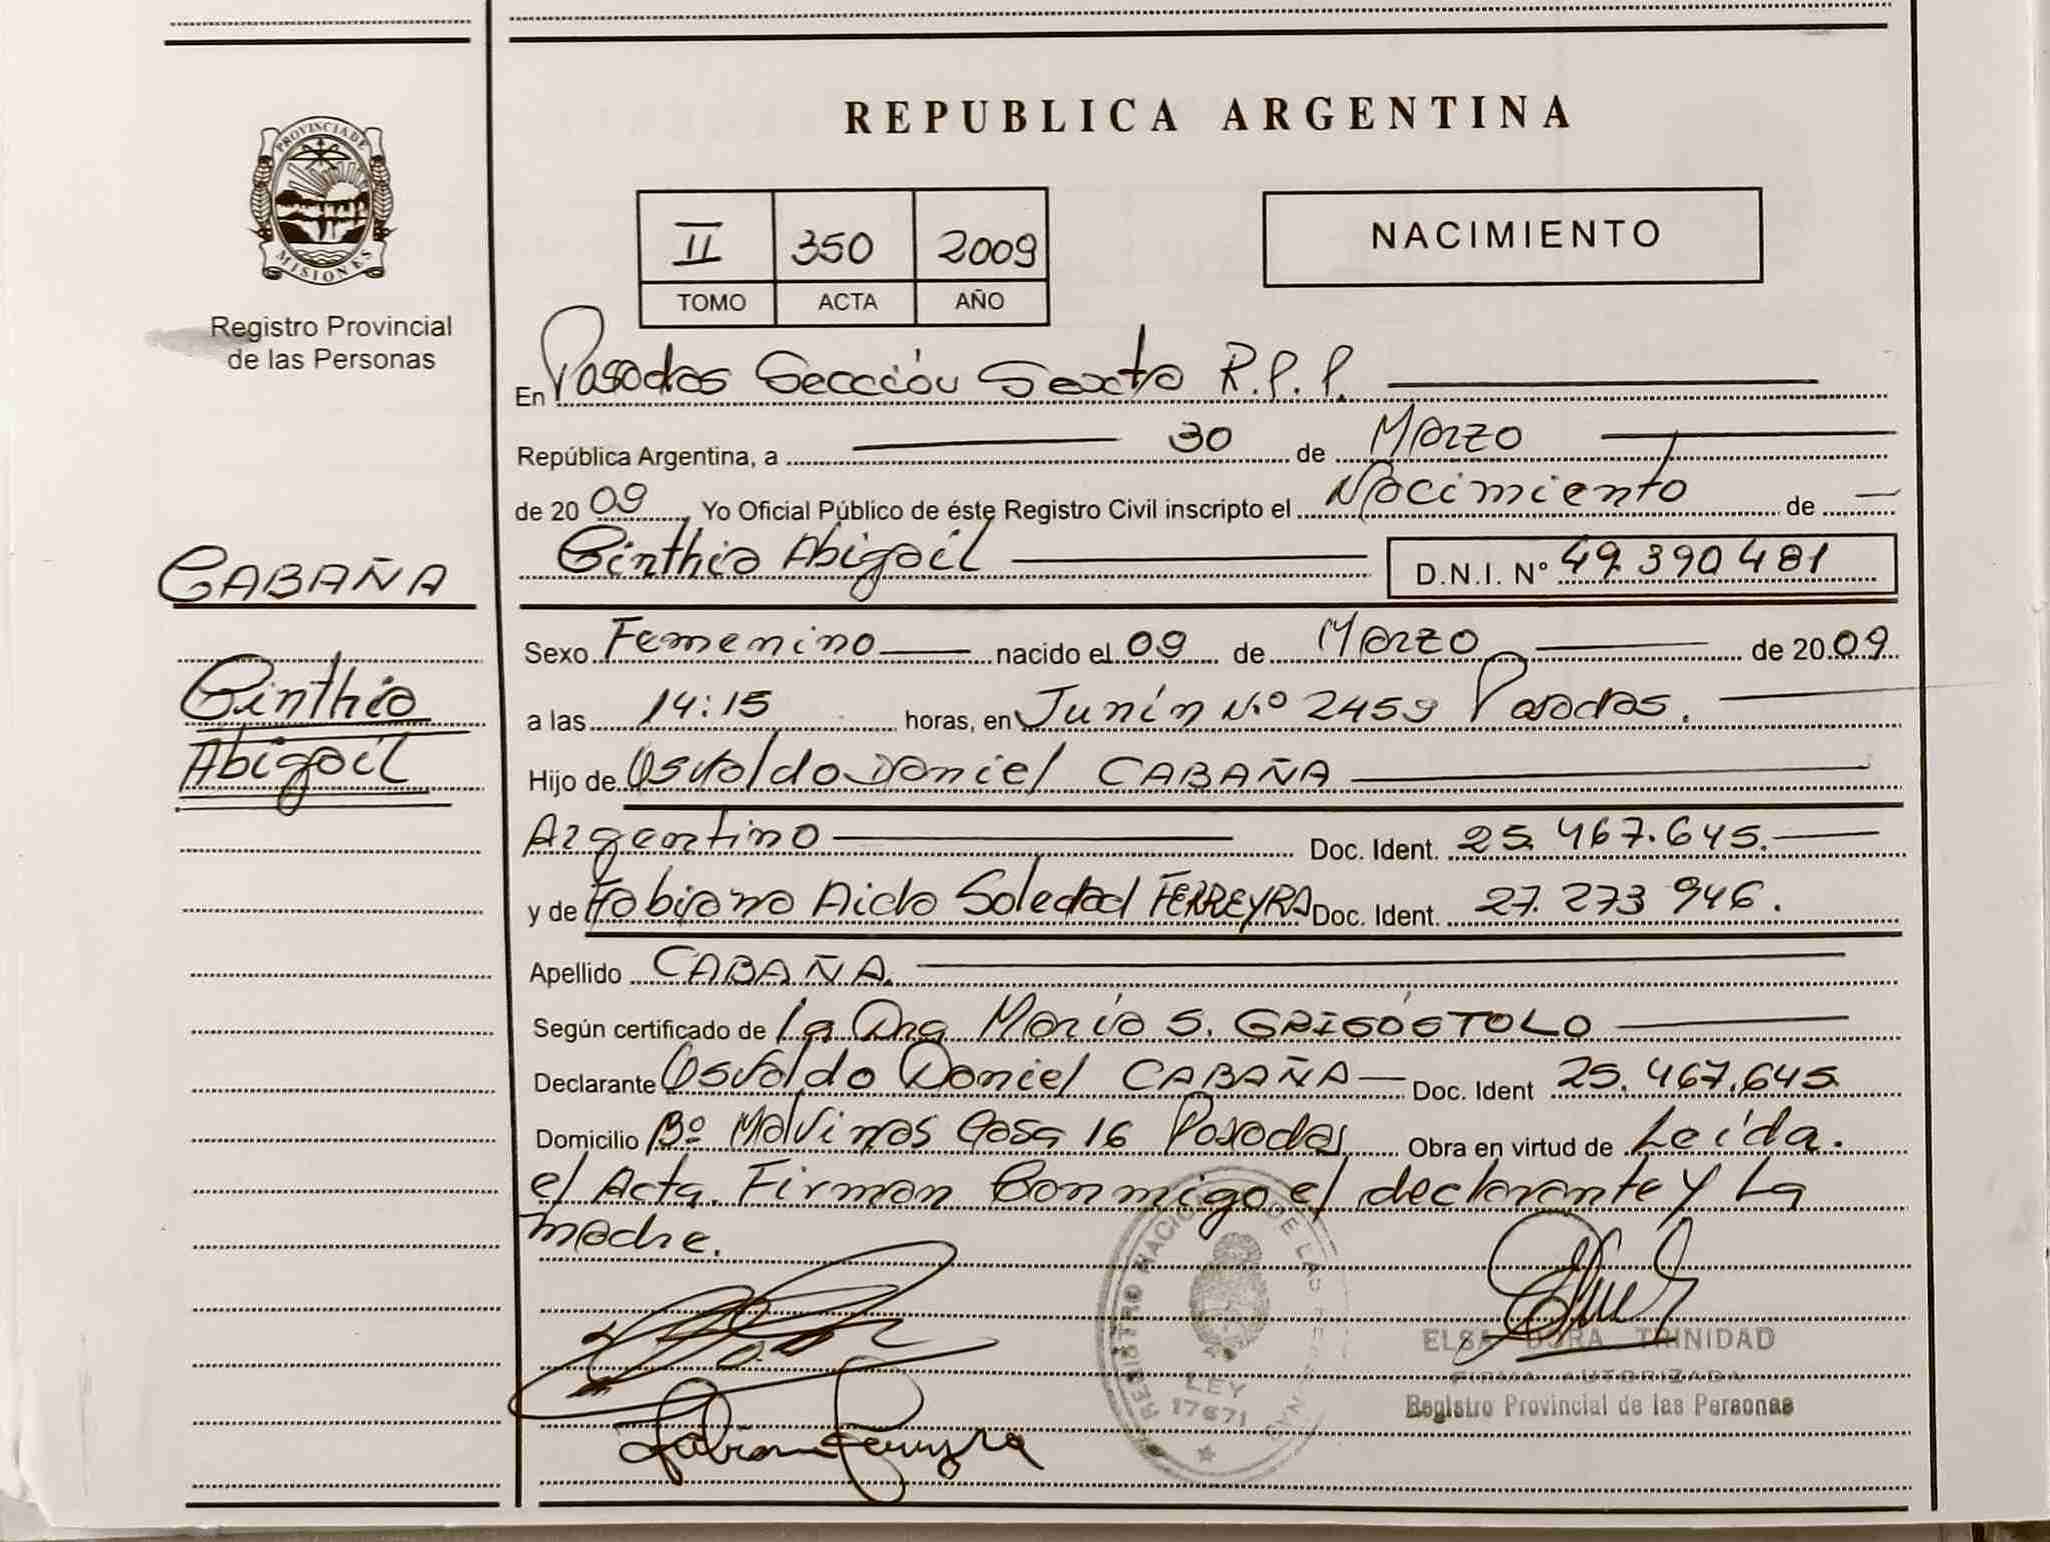 REPUBLICA ARGENTINA
PROVINCIA DE
MISIONES
Registro Provincial
de las Personas
II 350 2009
TOMO ACTA AÑO
NACIMIENTO
En Posadas Sección Sexta R.P.P.
República Argentina, a 30 de Marzo
de 2009 Yo Oficial Público de éste Registro Civil inscripto el Nacimiento de
Cinthia Abigail D.N.I. N° 49.390 481
CABAÑA
Cinthia
Abigail
Sexo Femenino nacido el 09 de Marzo de 2009
a las 14:15 horas, en Junín N.º 2459 Posadas.
Hijo de Osvaldo Daniel CABAÑA
Argentino Doc. Ident. 25.467.645.
y de Fabiana Aida Soledad FERREYRA Doc. Ident. 27.273 946.
Apellido CABAÑA.
Según certificado de la Dra María S. GRISÓSTOLO
Declarante Osvaldo Daniel CABAÑA Doc. Ident 25.467.645
Domicilio Bº Malvinas Casa 16 Posadas Obra en virtud de Leída.
el Acta. Firman Conmigo el declarante y La
madre.
REGISTRO NACIONAL DE LAS PERSONAS
LEY
17671
ELSA DORA TRINIDAD
FIRMA AUTORIZADA
Registro Provincial de las Personas
Fabiana Ferreyra